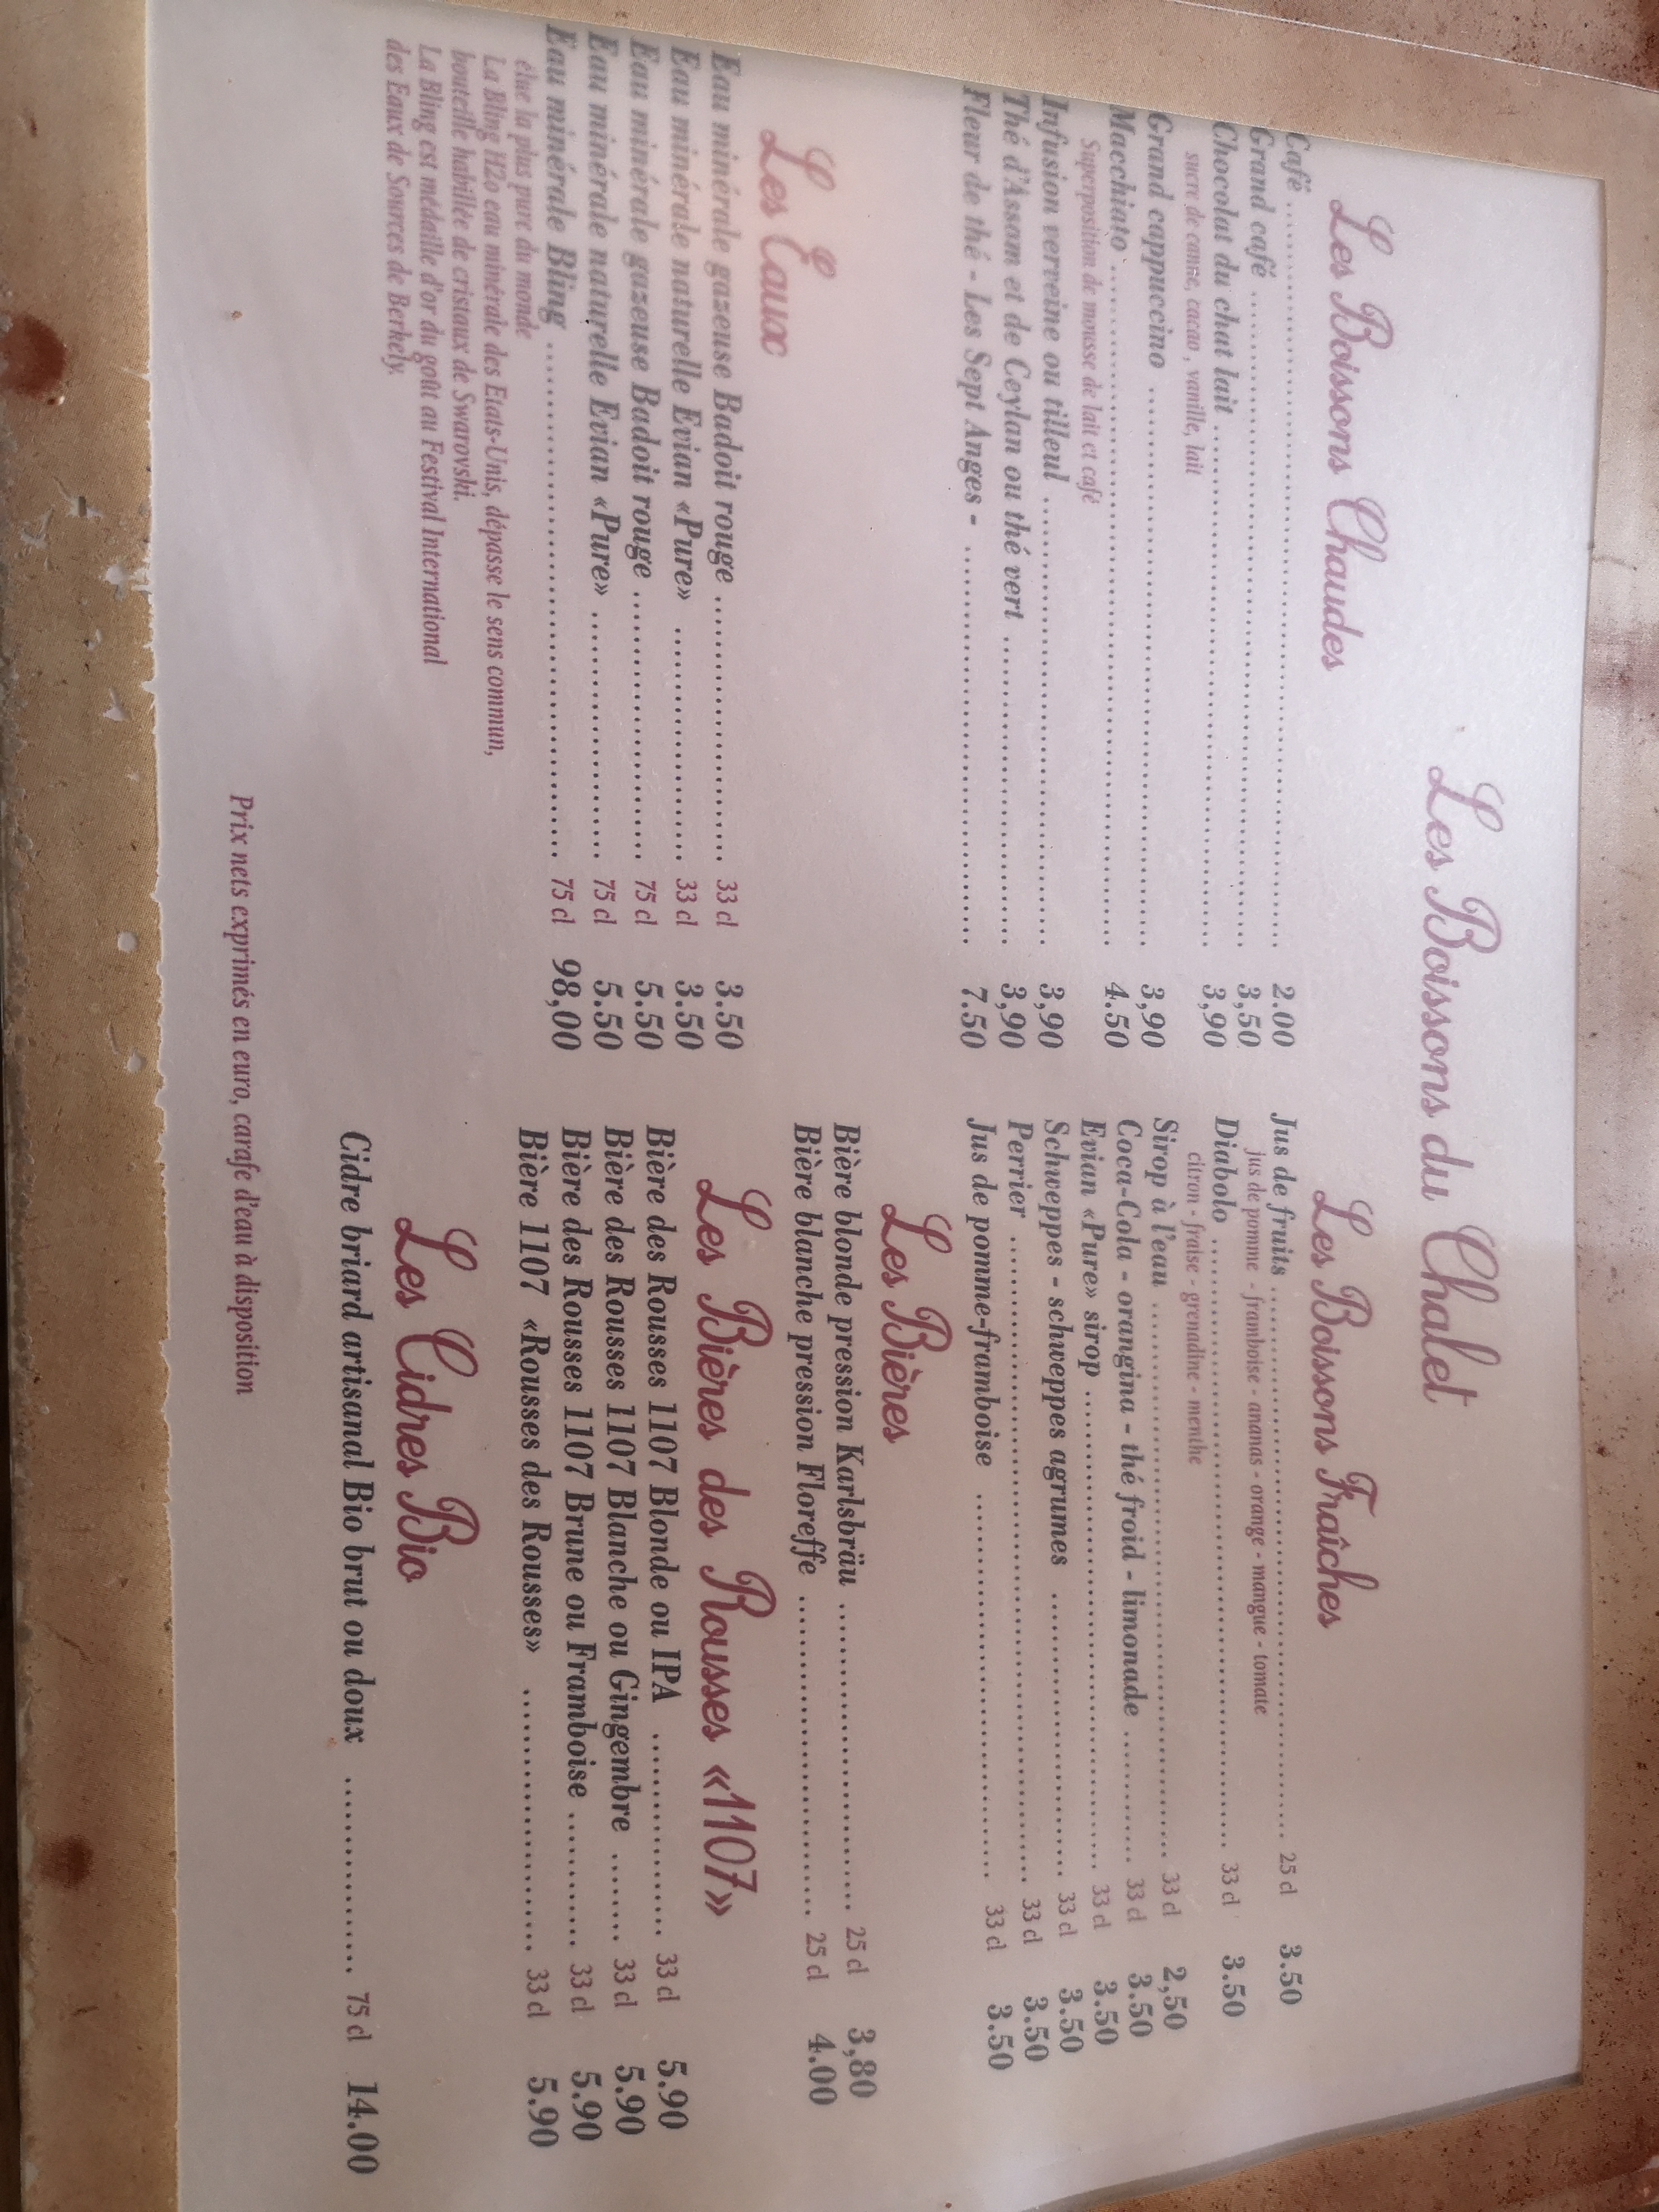 Les Boissons du Chalet
Les Boissons Chaudes
Café ........ 2.00
Grand café ........ 3,50
Chocolat du chat lait ........ 3,90
sucre de canne, cacao , vanille, lait
Grand cappuccino ........ 3,90
Macchiato ........ 4.50
Superposition de mousse de lait et café
Infusion verveine ou tilleul ........ 3,90
Thé d'Assam et de Ceylan ou thé vert ........ 3,90
Fleur de thé - Les Sept Anges - ........ 7.50
Les Eaux
Eau minérale gazeuse Badoit rouge ........ 33 cl 3.50
Eau minérale naturelle Evian «Pure» ........ 33 cl 3.50
Eau minérale gazeuse Badoit rouge ........ 75 cl 5.50
Eau minérale naturelle Evian «Pure» ........ 75 cl 5.50
Eau minérale Bling ........ 75 cl 98,00
élue la plus pure du monde
La Bling H2o eau minérale des Etats-Unis, dépasse le sens commun,
bouteille habillée de cristaux de Swarovski.
La Bling est médaille d'or du goût au Festival International
des Eaux de Sources de Berkely.
Les Boissons Fraîches
Jus de fruits ........ 25 cl 3.50
jus de pomme - framboise - ananas - orange - mangue - tomate
Diabolo ........ 33 cl 3.50
citron - fraise - grenadine - menthe
Sirop à l'eau ........ 33 cl 2,50
Coca-Cola - orangina - thé froid - limonade ........ 33 cl 3.50
Evian «Pure» sirop ........ 33 cl 3.50
Schweppes - schweppes agrumes ........ 33 cl 3.50
Perrier ........ 33 cl 3.50
Jus de pomme-framboise ........ 33 cl 3.50
Les Bières
Bière blonde pression Karlsbräu ........ 25 cl 3,80
Bière blanche pression Floreffe ........ 25 cl 4.00
Les Bières des Rousses «1107»
Bière des Rousses 1107 Blonde ou IPA ........ 33 cl 5.90
Bière des Rousses 1107 Blanche ou Gingembre ........ 33 cl 5.90
Bière des Rousses 1107 Brune ou Framboise ........ 33 cl 5.90
Bière 1107 «Rousses des Rousses» ........ 33 cl 5.90
Les Cidres Bio
Cidre briard artisanal Bio brut ou doux ........ 75 cl 14.00
Prix nets exprimés en euro, carafe d'eau à disposition